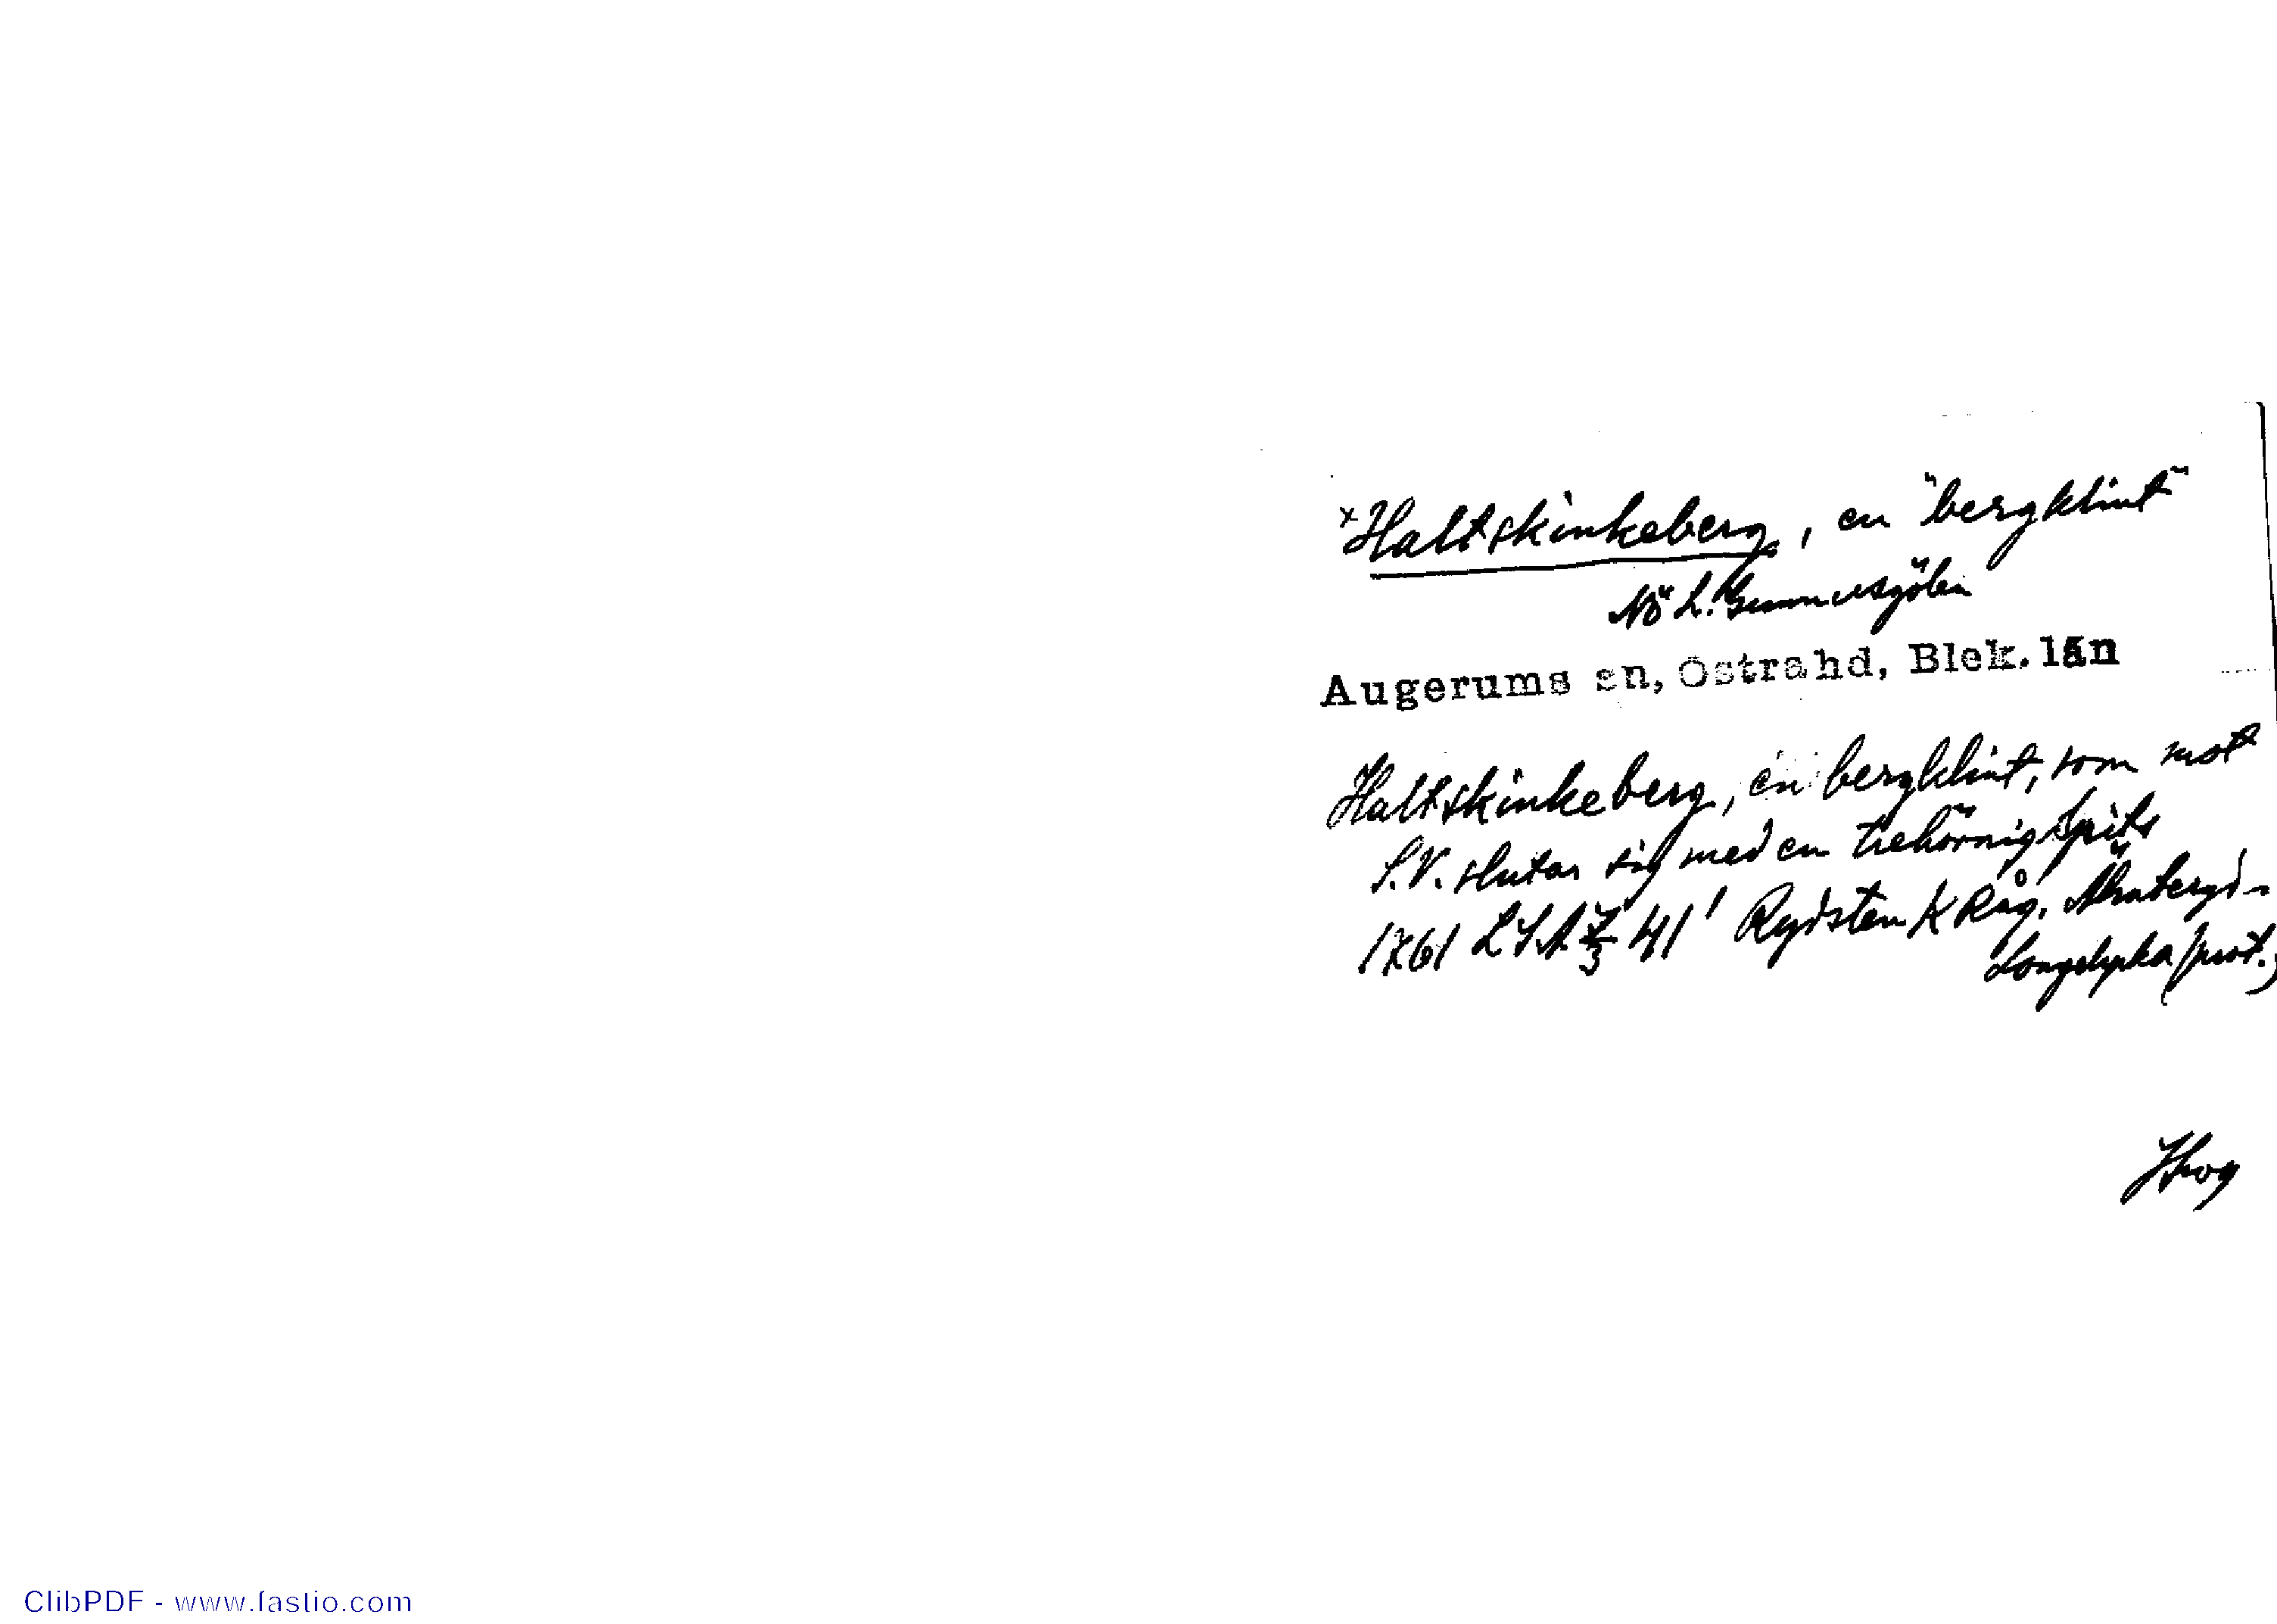 ×Haltskinkeberg, en "bergklint"
NÖ L. Gummesgölen
Augerums sn, Östra hd, Blek. län
Haltskinkeberg, en bergklint, som mot
S.V. slutar sig med en trehörnig Spits
1761 LSA 41' Rydsten K Råg.
Långelycka (prot.)
ClibPDF - www.fastio.com